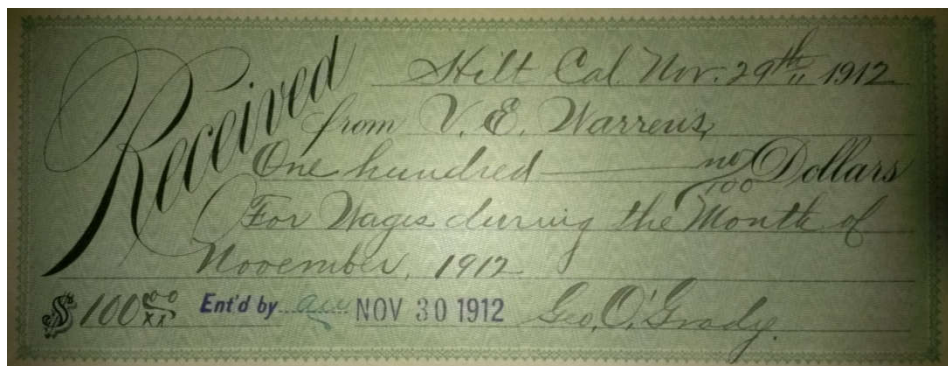 Received
Hilt Cal. Nov. 29th 1912
from V. E. Warrens,
One hundred no/100 Dollars
For Wages during the Month of
November, 1912
$100 00/xx Ent'd by NOV 30 1912 Geo. O'Grady.